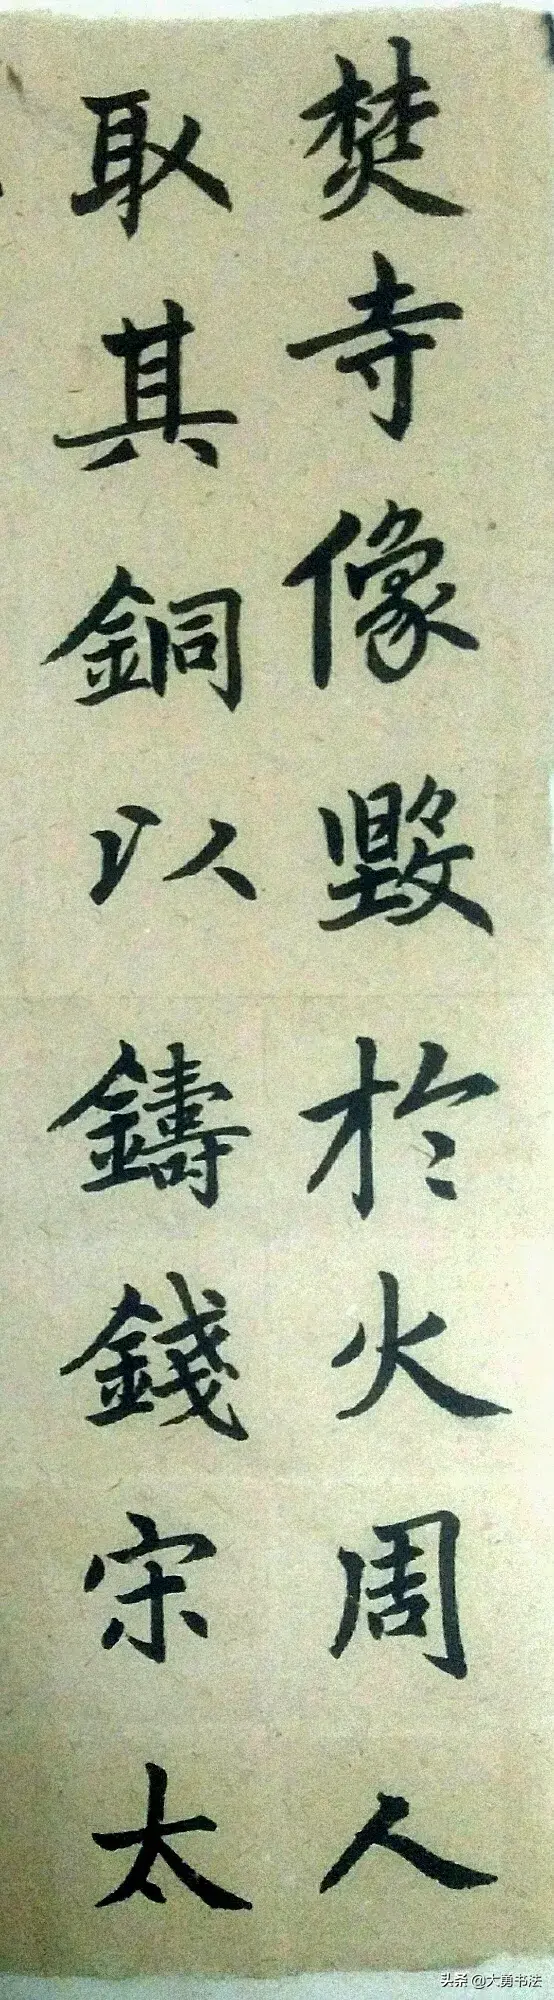 焚寺像毀於火周人
取其銅以鑄錢宋太
头条 @大勇书法